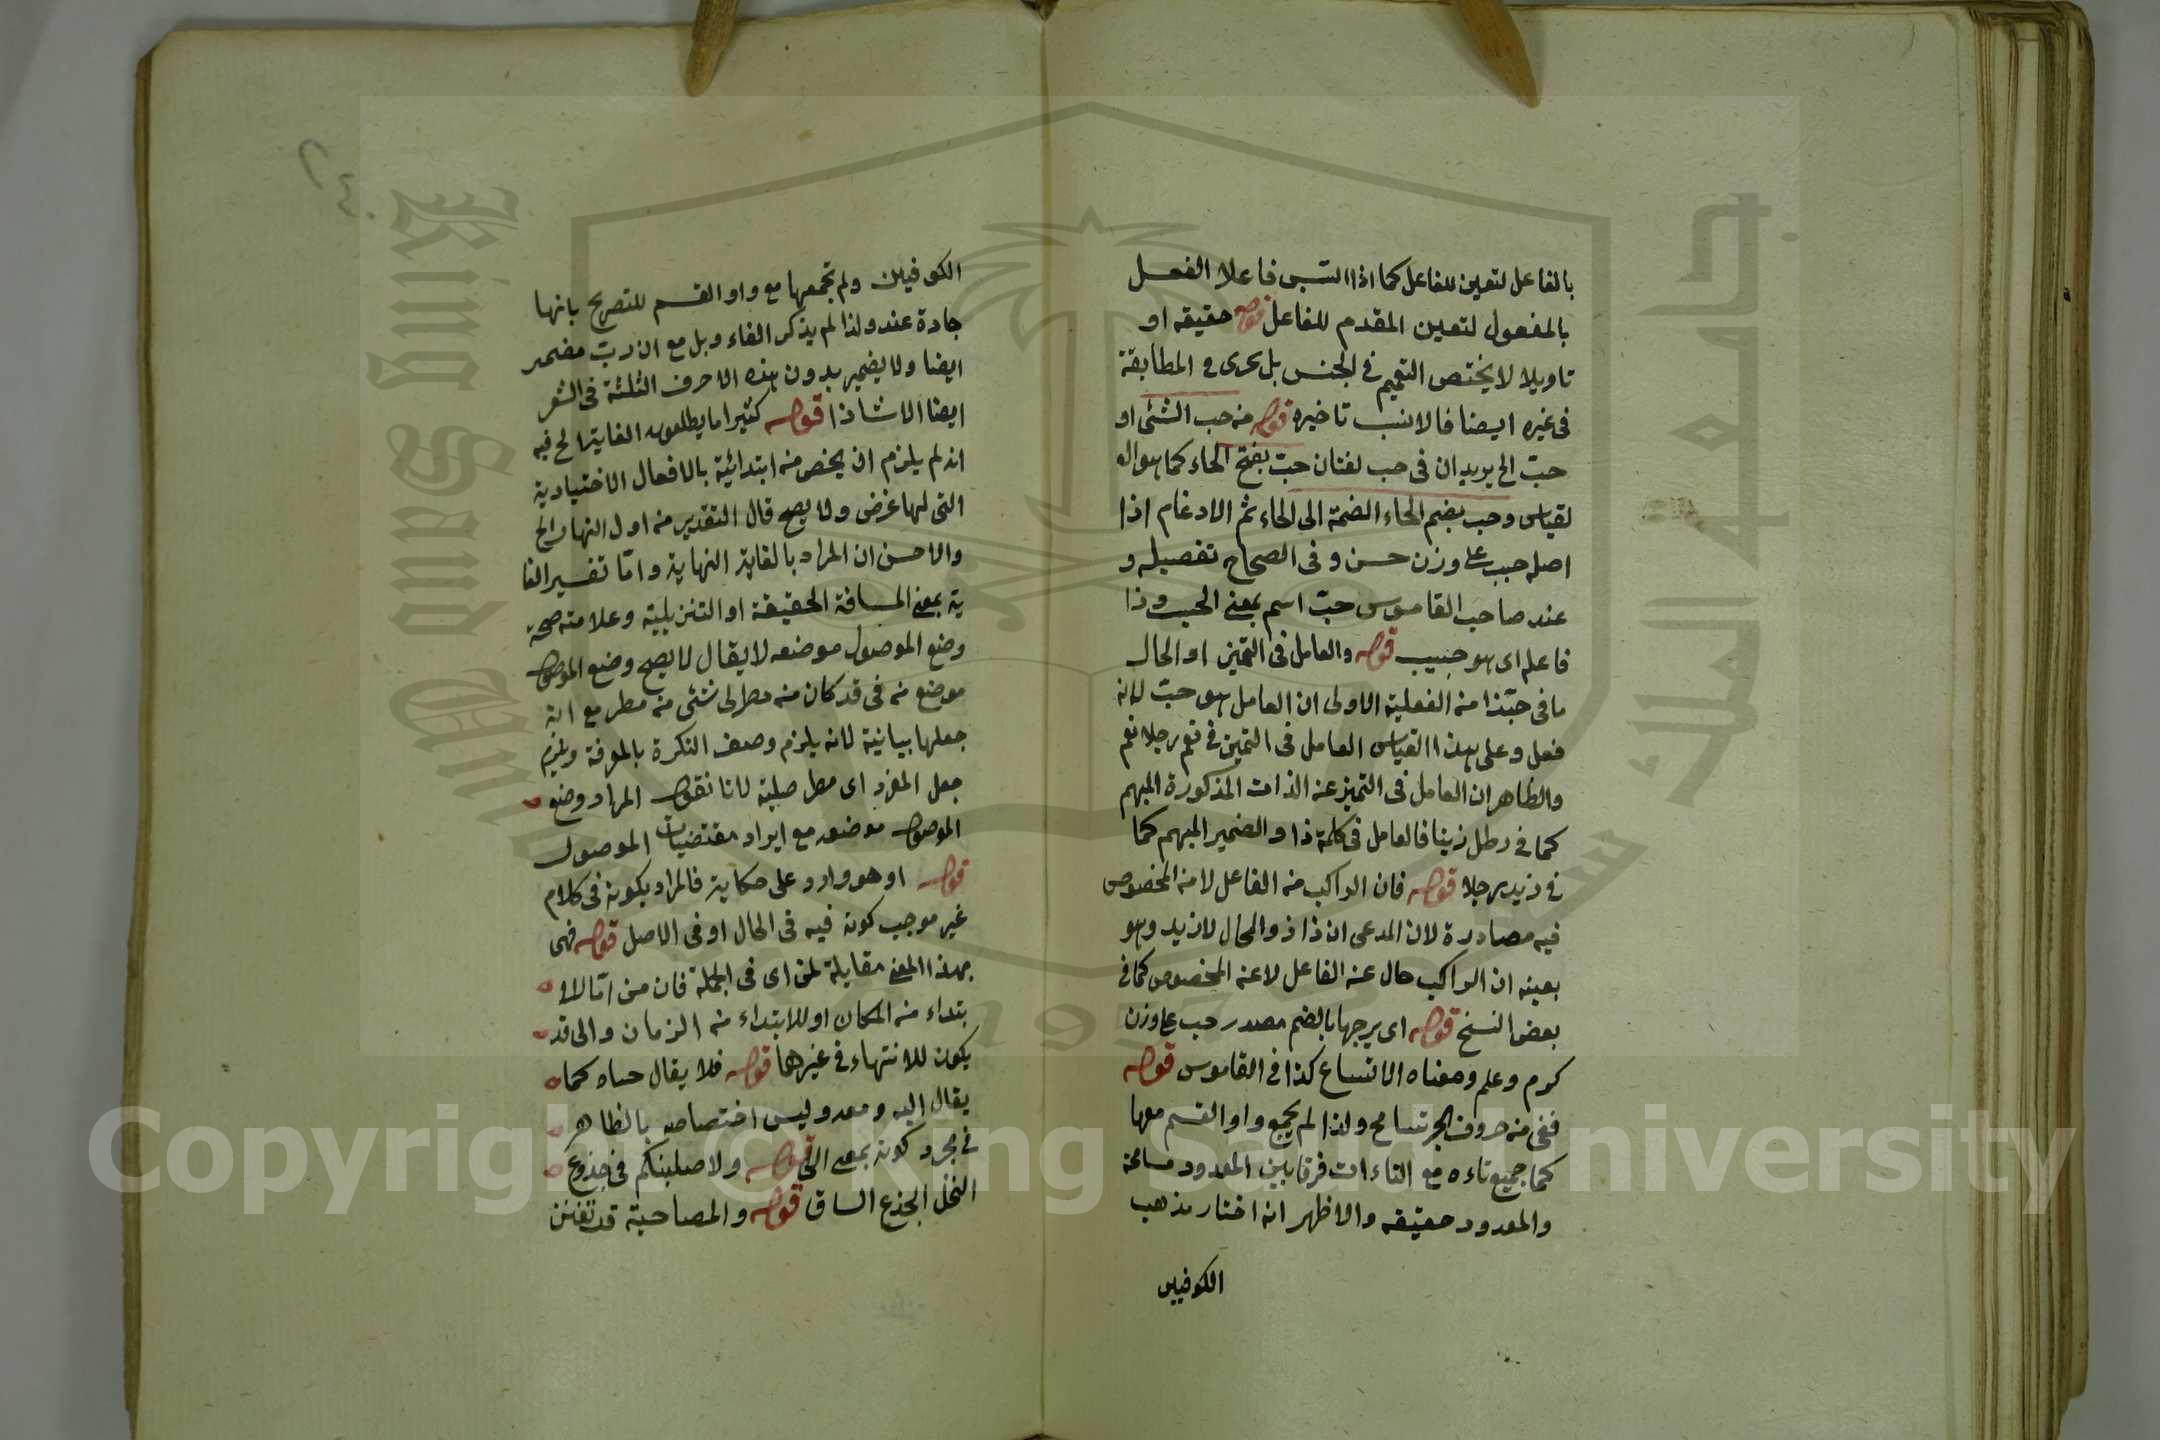 بالفاعل لتعين للفاعل كما اذا التبس فاعلا الفعل
بالمفعول لتعين المقدم للفاعل قوله حقيقه او
تاويلا لا يختص التتميم فى الجنس بل يجرى فى المطابقة
فى غيره ايضا فالانسب تاخيره قوله من حب الشئ او
حبّ الخ يريد ان فى حب لغتان حبّ بفتح الحاء كما هو ال
لقياس وحب بضم الحاء الضمة الى الحاء ثم الادغام اذا
اصله حبب على وزن حسن وفى الصحاح تفصيله و
عند صاحب القاموس حبّ اسم بمعنى الحبيب وذا
فاعله اى هو حبيب قوله والعامل فى التميز او الحال
ما فى حبّذا من الفعلية الاولى ان العامل هو حبّ لانه
فعل وعلى هذا القياس العامل فى التميز فى نعم رجلا نعم
والظاهر ان العامل فى التميز عن الذات المذكورة المبهم
كما فى رطل زيتا فالعامل فى كلمة ذا والضمير المبهم كما
فى زيد رجلا قوله فان الراكب من الفاعل لا من المخصوص
فيه مصادرة لان المدعى ان ذا ذو الحال لا زيد وهو
بعينه ان الراكب حال عن الفاعل لا عن المخصوص كما فى
بعض النسخ قوله اى برحبها بالضم مصدر رحب على وزن
كرم وعلم ومعناه الاتساع كذا فى القاموس قوله
ففى من حروف الجر تسامح ولذا لم يجمع واو القسم معها
كما جميع تاءه مع التاءات فرقا بين المعدود مسامحة
والمعدود حقيقه والاظهر انه اختار مذهب
الكوفيين
الكوفيين ولم تجمعها مع واو القسم للتصريح بانها
جادة عنده ولذا لم يذكر الفاء وبل مع ان ربّ مضمر
ايضا ولا يضمر بدون هذه الاحرف الثلثة فى الشعر
ايضا الا شاذا قوله كثيرا ما يطلقون الغاية الخ فيه
انه لم يلزم ان يختص من ابتدائية بالافعال الاختيارية
التى لها غرض ولا يصح قال التقدير من اول النهار الخ
والاحسن ان المراد بالغاية النهاية وامّا تفسير الغا
ية بمعنى المسافة الحقيقة او التنزيلية وعلامته صحة
وضع الموصول موضعه لا يقال لا يصح وضع الموصول
موضع من فى قد كان من مطر اى شئى من مطر مع انه
جعلها بيانية لانه يلزم وصف النكرة بالمعرفة ويلزم
جعل المفرد اى مطر صلة لانا نقول المراد وضع
الموصول موضعه مع ايراد مقتضيات الموصول
قوله او هو وارد على حكاية فالمراد بكونه فى كلام
غير موجب كونه فيه فى الحال او فى الاصل قوله فهى
بهذا المعنى مقابلة لمن اى فى الجملة فان من امّا للا
بتداء من المكان او للابتداء من الزمان والى قد
يكون للانتهاء فى غيرهما قوله فلا يقال حتاه كما
يقال اليه ومعه وليس اختصاصه بالظاهر
فى مجرد كونه بمعنى الى قوله ولاصلبنكم فى جذوع
النخل الجذع الساق قوله والمصاحبة قد تغنن
٢٤٠
Copyright © King Saud University
King Saud University
جامعة الملك سعود
1957